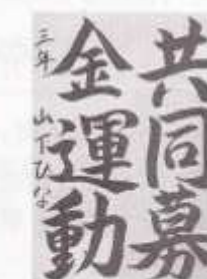 共同募
金運動
三年 山下ひな